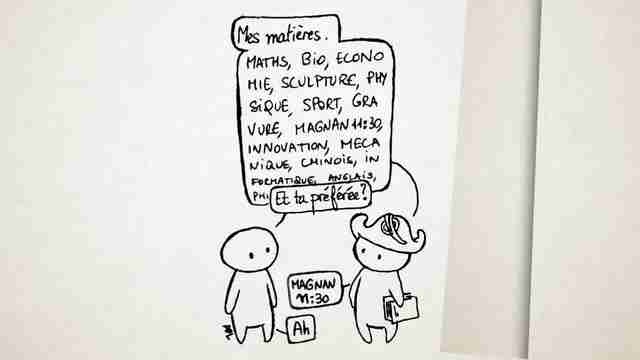 Mes matières.
MATHS, BIO, ECONO
MIE, SCULPTURE, PHY
SIQUE, SPORT, GRA
VURE, MAGNAN 11:30,
INNOVATION, MECA
NIQUE, CHINOIS, IN
FORMATIQUE, ANGLAIS,
Et ta préférée?
MAGNAN
11:30
Ah